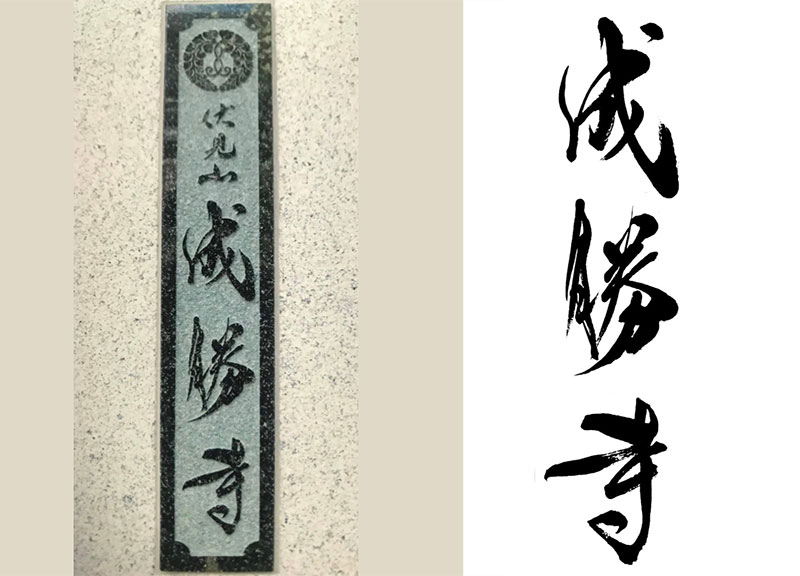 伏見山
成勝寺
成勝寺